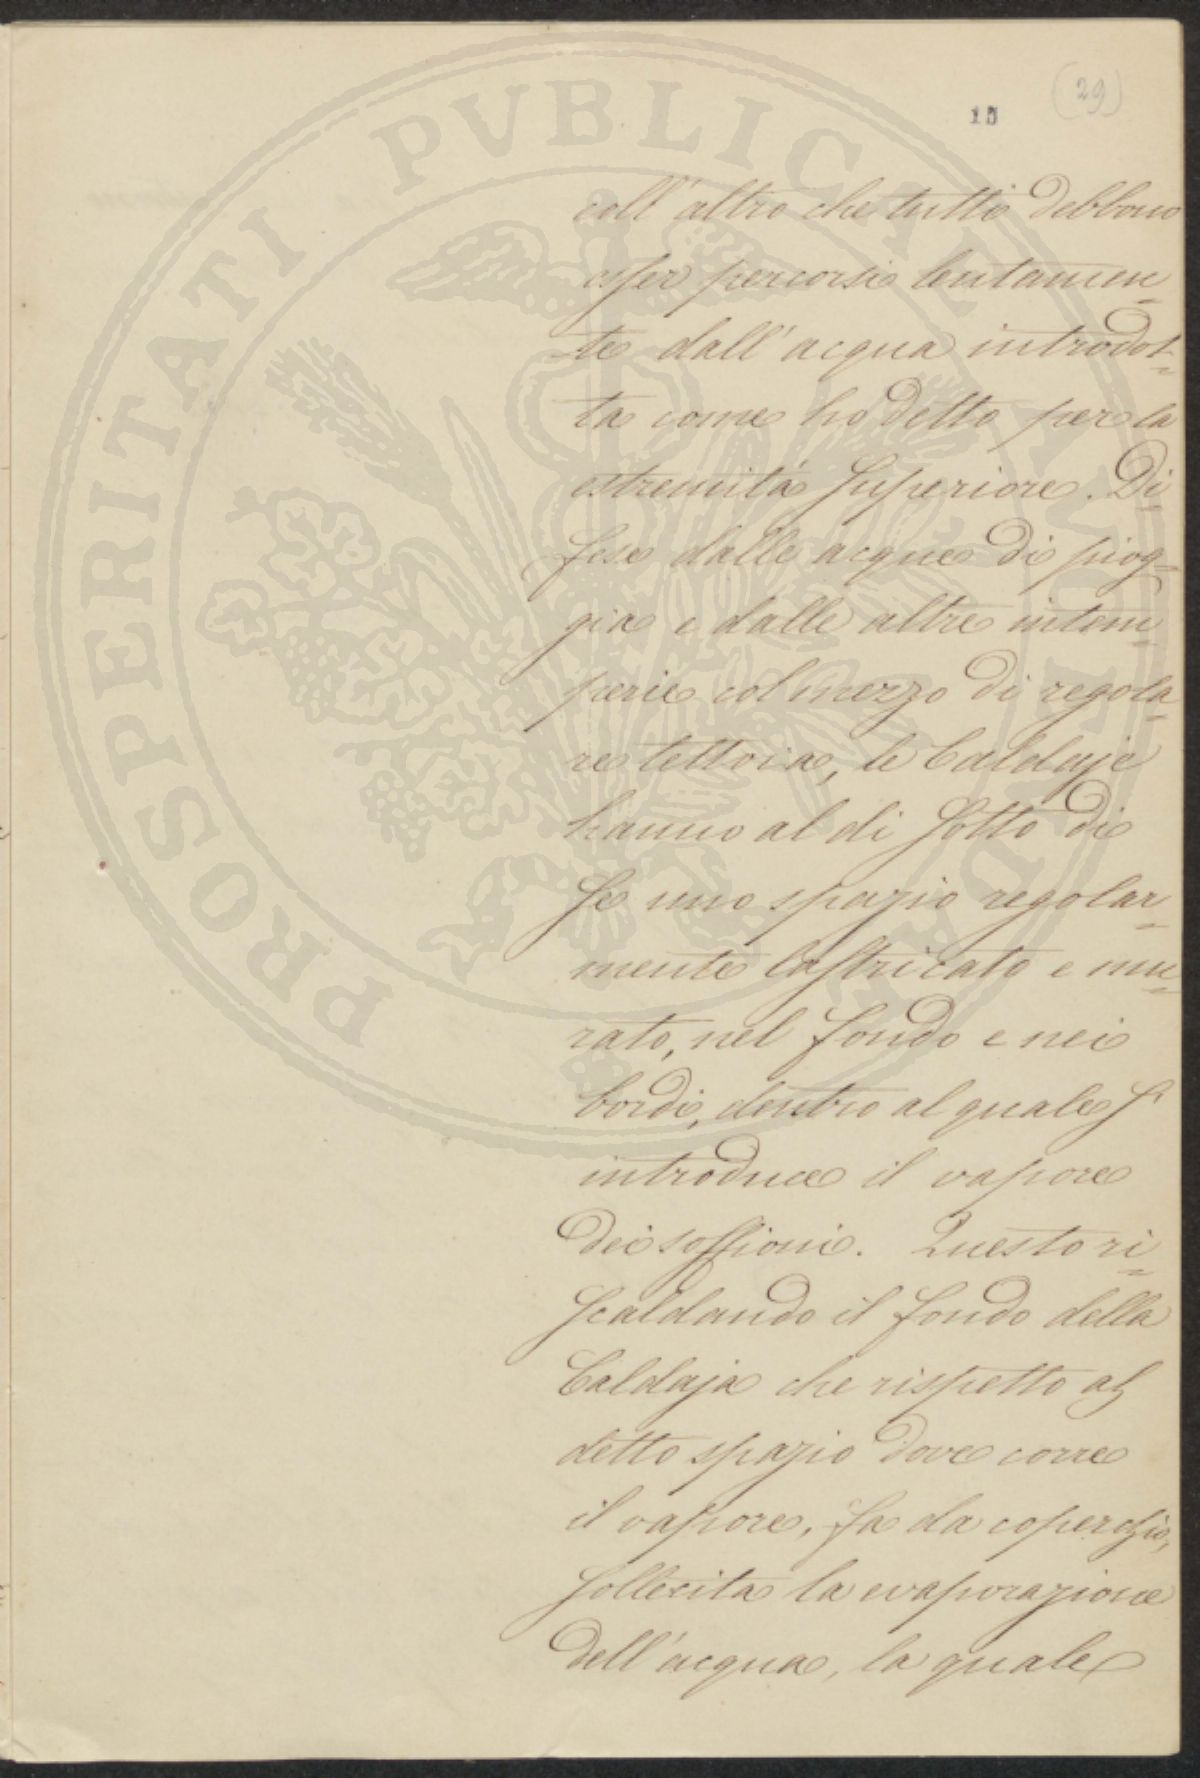 (29)
15
coll'altro che tutti debbono
esser percorsi lentamen=
te dall'acqua introdot=
ta come ho detto per la
estremità superiore. Di=
fese dalle acque di piog=
gia e dalle altre intem=
perie col mezzo di regola=
re tettoia, le Caldaje
hanno al di sotto di
se uno spazio regolar=
mente lastricato e mu=
rato, nel fondo e nei
bordi, dentro al quale s'
introduce il vapore
dei soffioni. Questo ri=
scaldando il fondo della
Caldaja che rispetto al
detto spazio dove corre
il vapore, fa da coperchio,
sollecita la evaporazione
dell'acqua, la quale
PROSPERITATI PVBLICAE AVGENDAE